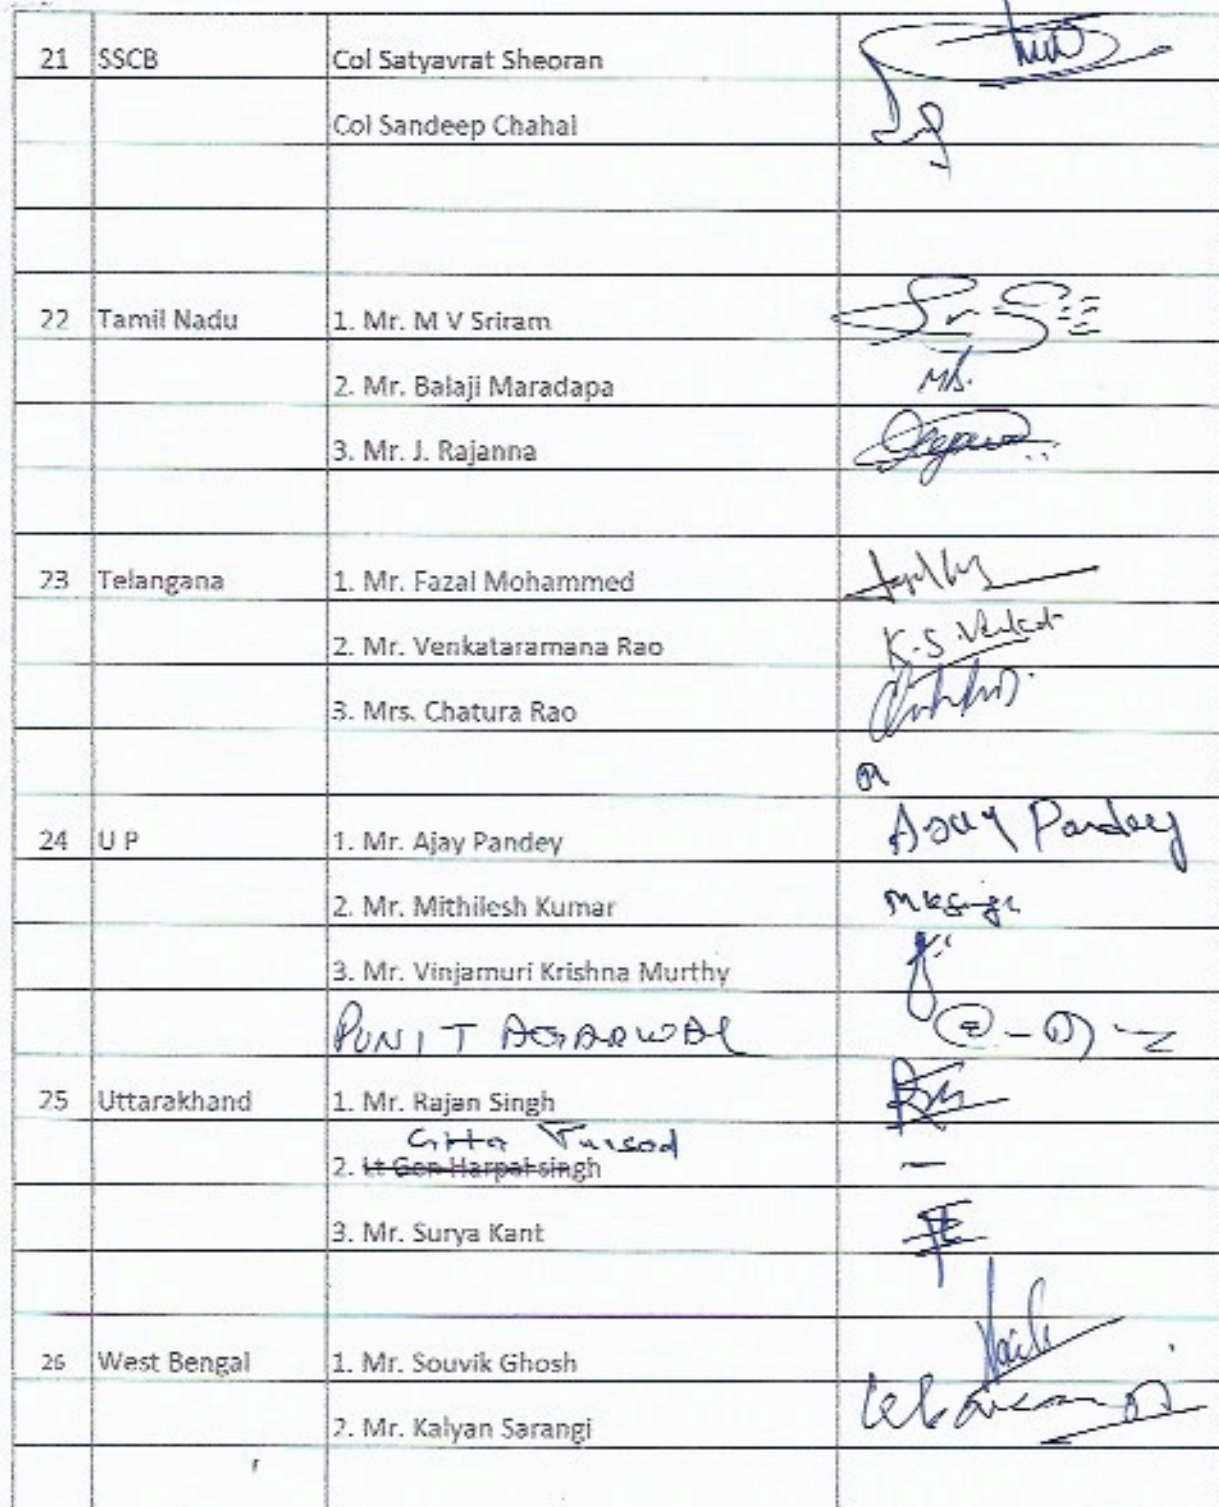 21 SSCB Col Satyavrat Sheoran
Col Sandeep Chahal
22 Tamil Nadu 1. Mr. M V Sriram
2. Mr. Balaji Maradapa
3. Mr. J. Rajanna
23 Telangana 1. Mr. Fazal Mohammed
2. Mr. Venkataramana Rao K.S. Venkat
3. Mrs. Chatura Rao
24 U P 1. Mr. Ajay Pandey Ajay Pandey
2. Mr. Mithilesh Kumar
3. Mr. Vinjamuri Krishna Murthy
PUNIT AGARWAL
25 Uttarakhand 1. Mr. Rajan Singh
2. Lt Gen Harpal singh
3. Mr. Surya Kant
26 West Bengal 1. Mr. Souvik Ghosh
2. Mr. Kalyan Sarangi